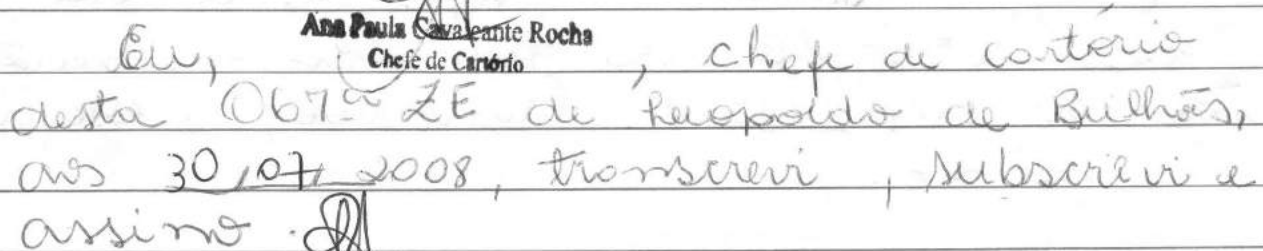 Ana Paula Cavalcante Rocha
Chefe de Cartório
Eu, , chefe de cartório
desta 067ª ZE de Leopoldo de Bulhões,
aos 30/07/2008, transcrevi, subscrevi e
assino.